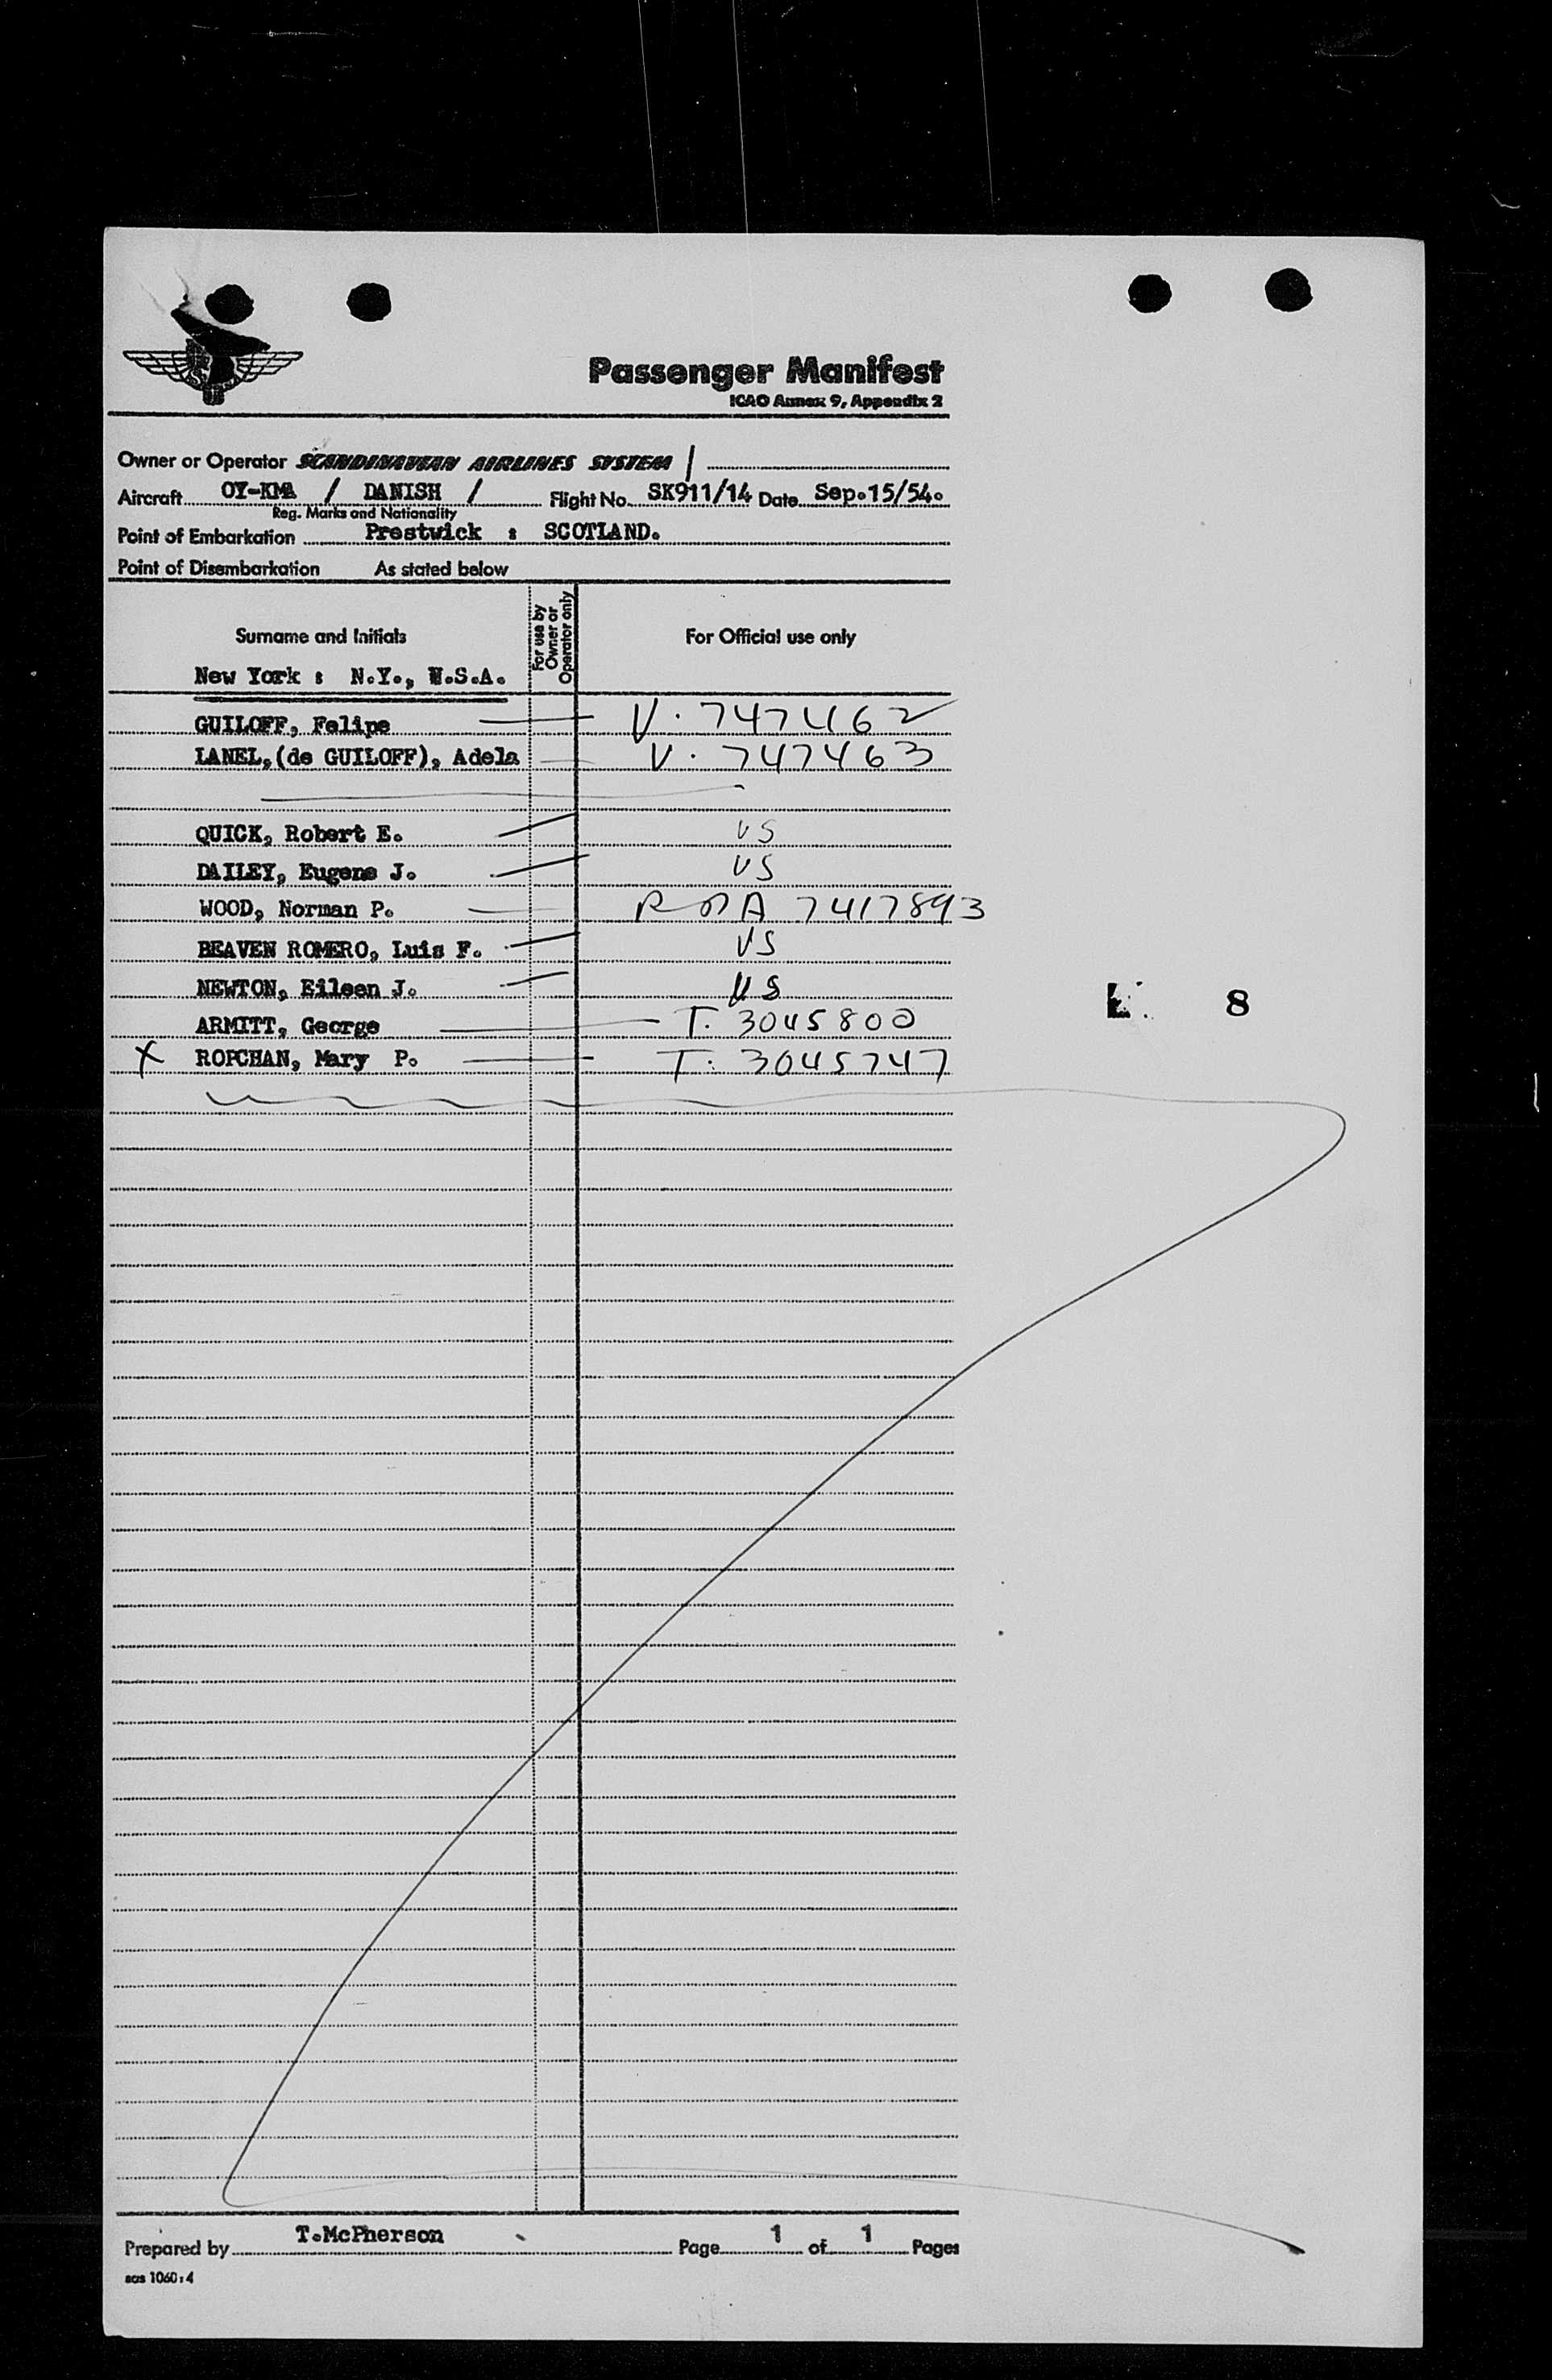 Passenger Manifest
ICAO Annex 9, Appendix 2
Owner or Operator SCANDINAVIAN AIRLINES SYSTEM /
Aircraft OY-KMA / DANISH / Flight No. SK911/14 Date Sep.15/54.
Reg. Marks and Nationality
Point of Embarkation Prestwick : SCOTLAND.
Point of Disembarkation As stated below
Surname and Initials For use by Owner or Operator only For Official use only
New York : N.Y., U.S.A.
GUILOFF, Felipe V. 747462
LANEL,(de GUILOFF), Adela V. 747463
QUICK, Robert E. US
DAILEY, Eugene J. US
WOOD, Norman P. 7417893
BEAVEN ROMERO, Luis F. US
NEWTON, Eileen J. US
ARMITT, George T. 3045800
X ROPCHAN, Mary P. T. 3045747
8
Prepared by T.McPherson Page 1 of 1 Pages
sas 1060:4